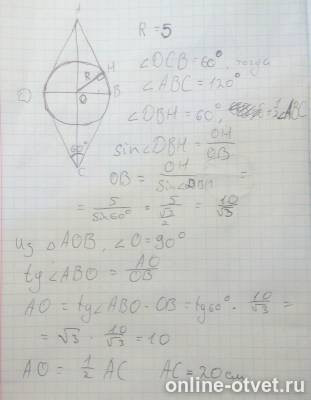 A
R = 5
∠DCB = 60°, тогда
∠ABC = 120°
∠DBH = 60°, = ½∠ABC
sin∠DBH = OH/OB
OB = OH/sin∠DBH =
= 5/sin60° = 5/(√3/2) = 10/√3
Из △AOB, ∠O = 90°
tg∠ABO = AO/OB
AO = tg∠ABO · OB = tg60° · 10/√3 =
= √3 · 10/√3 = 10
AO = ½ AC AC = 20 см
R H
D O B
60°
C
online-otvet.ru